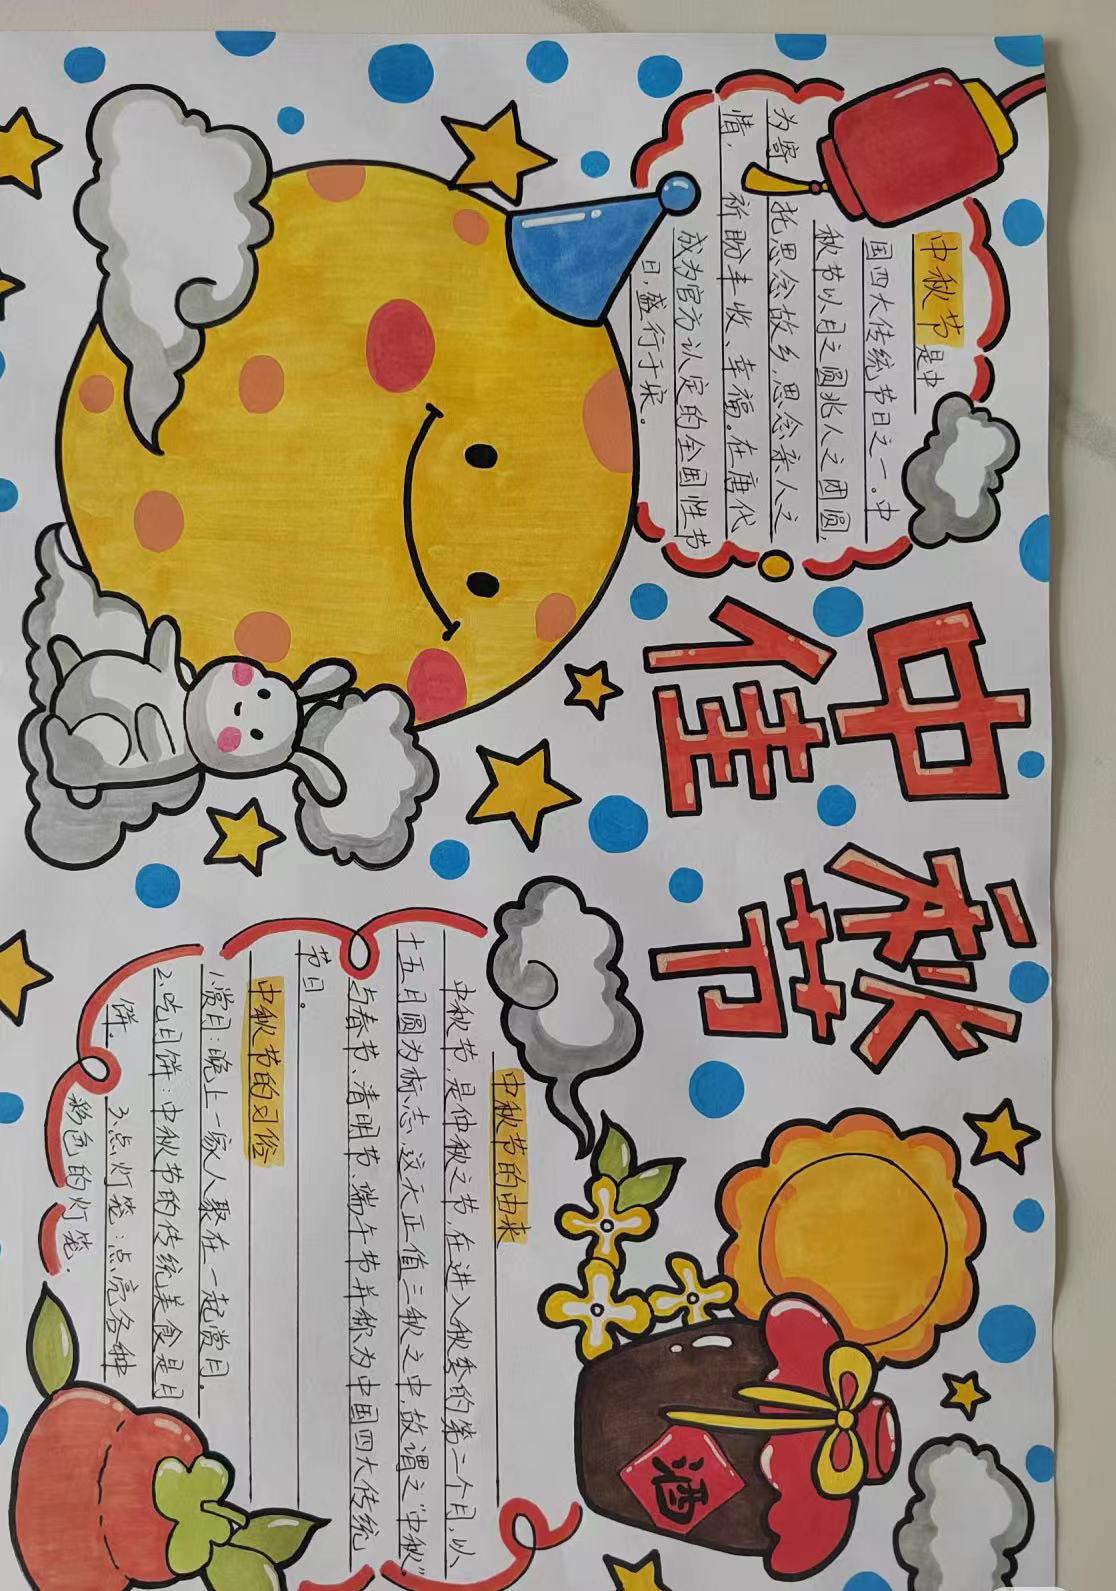 中秋
佳节
中秋节是中
国四大传统节日之一。中
秋节以月之圆兆人之团圆,
为寄托思念故乡,思念亲人之
情, 祈盼丰收、幸福。在唐代
成为官方认定的全国性节
日,盛行于宋。
酒
中秋节的由来
中秋节,是仲秋之节,在进入秋季的第二个月,以
十五月圆为标志,这天正值三秋之中,故谓之"中秋"。
与春节、清明节、端午节并称为中国四大传统
节日。
中秋节的习俗
1.赏月:晚上一家人聚在一起赏月。
2.吃月饼:中秋节的传统美食是月
饼。 3.点灯笼:点亮各种
彩色的灯笼.